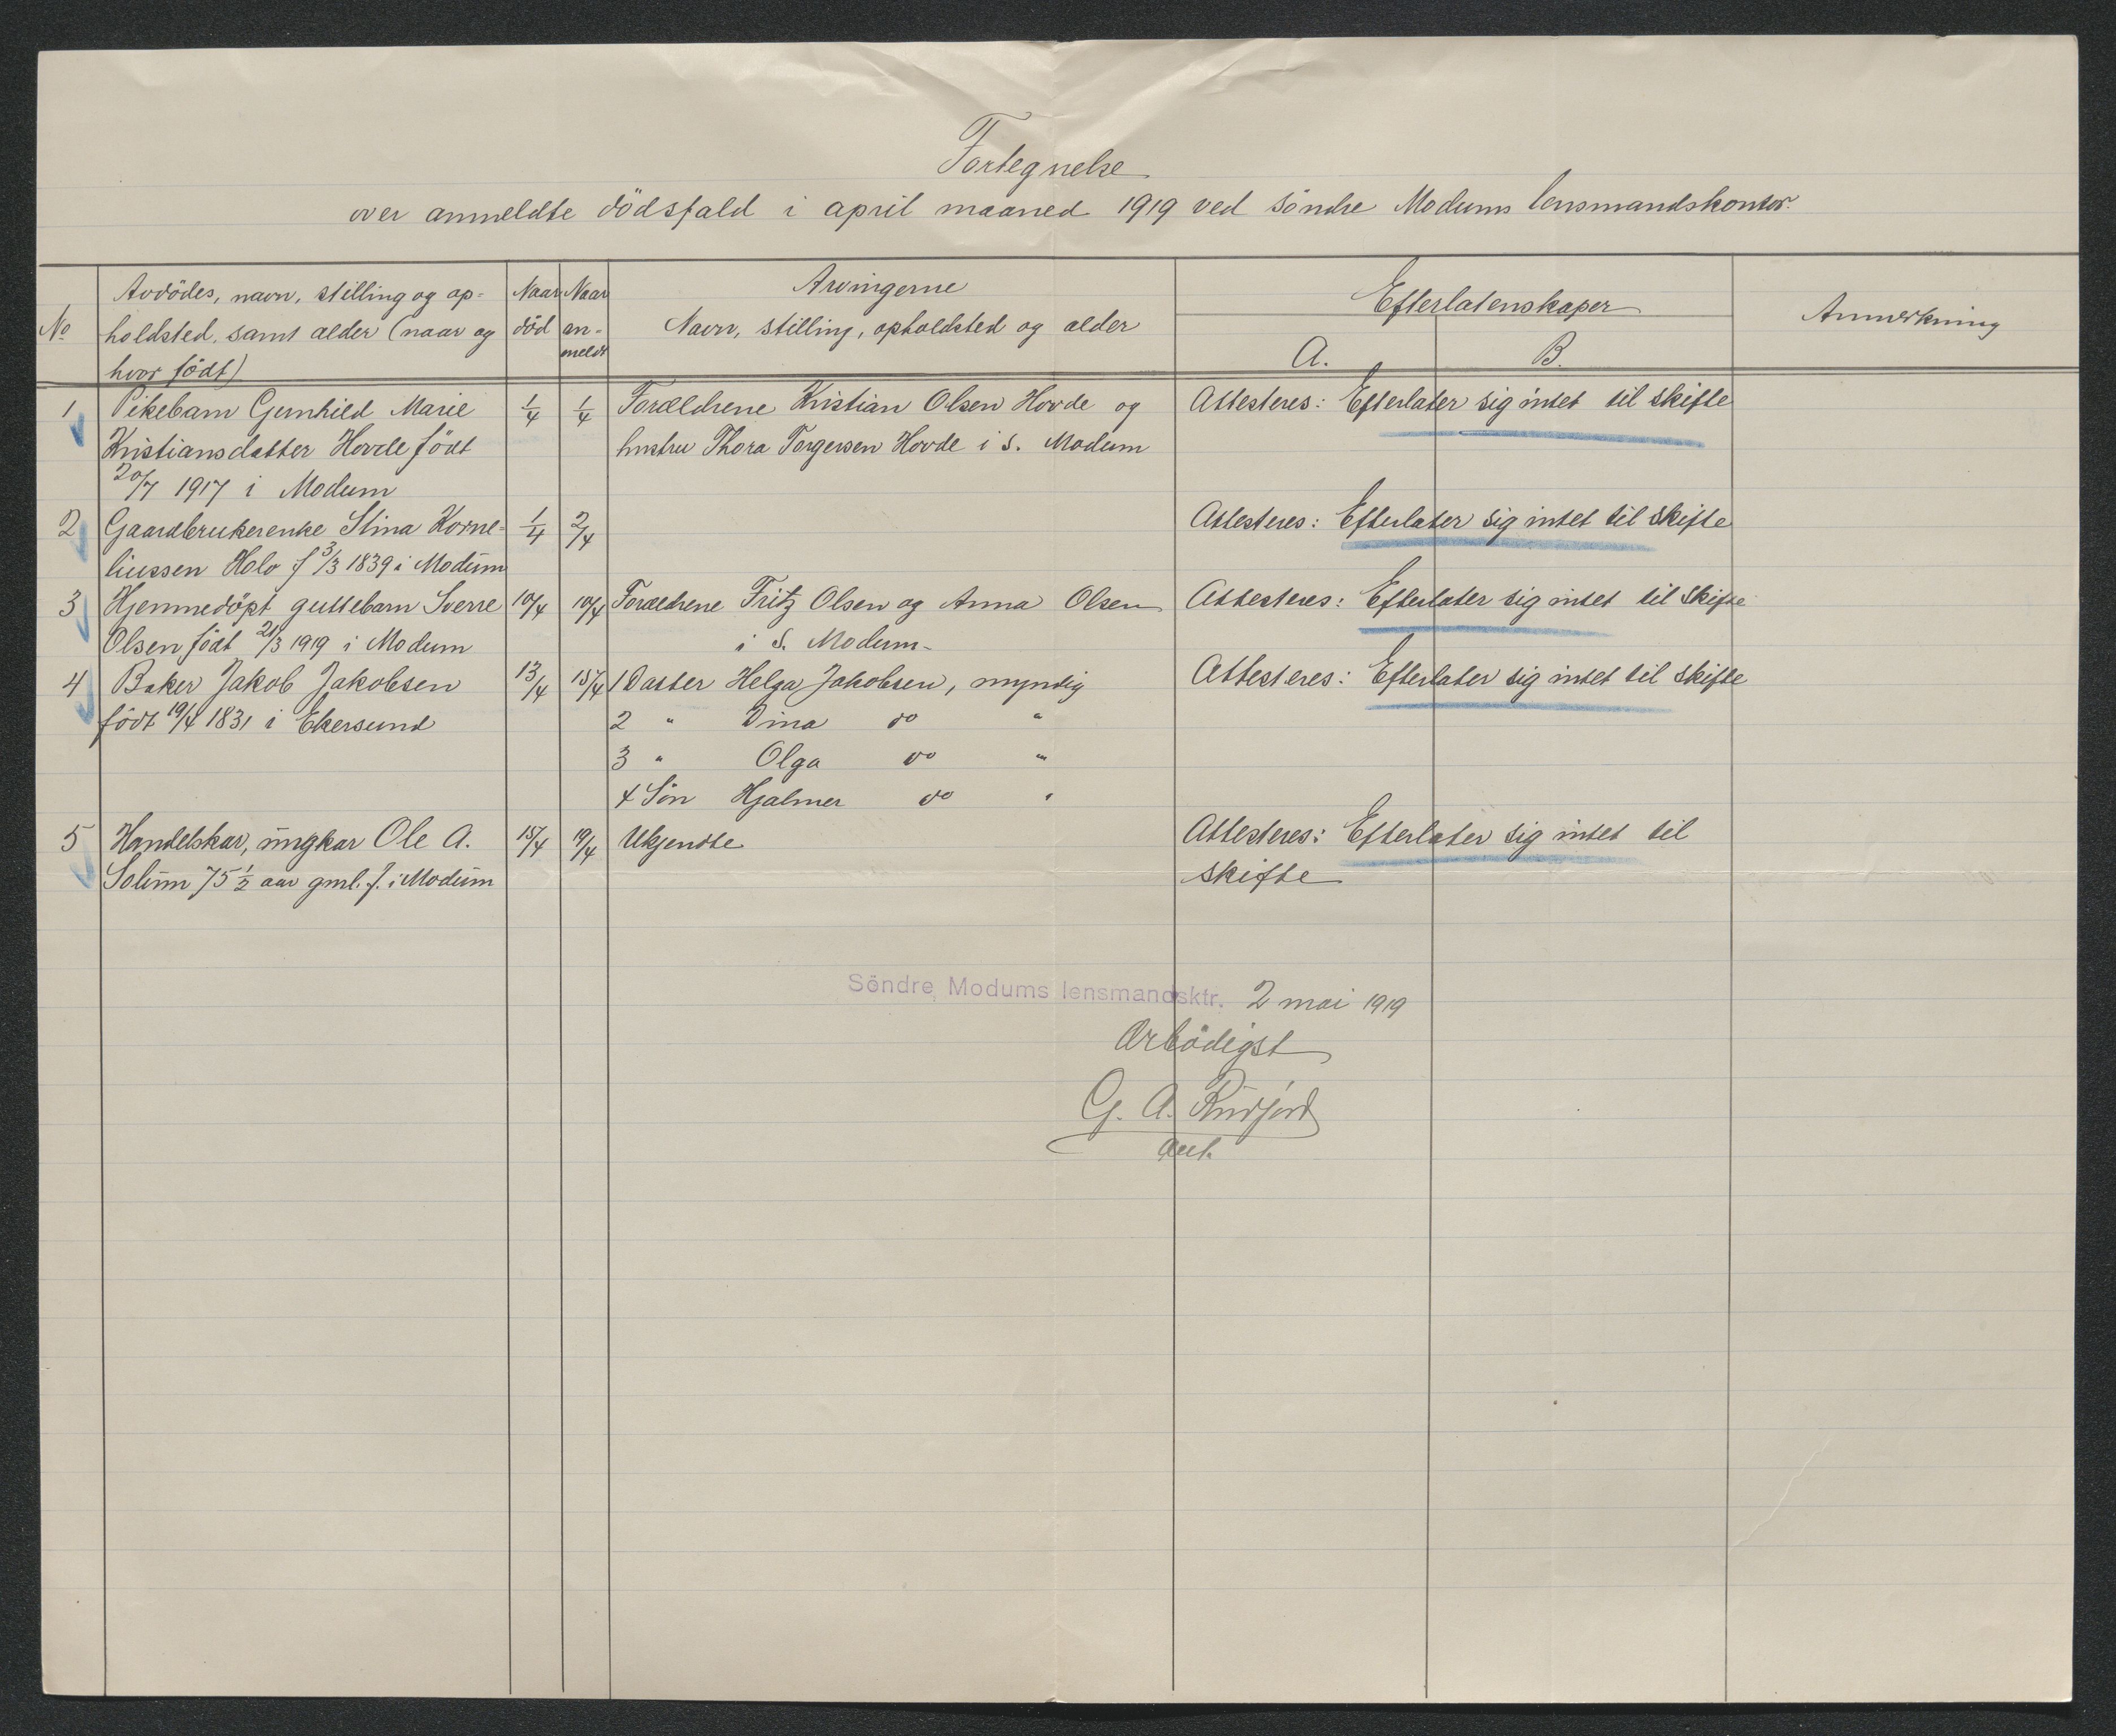 Fortegnelse
over anmeldte dödsfald i april maaned 1919 ved söndre Modums lensmandskontor.
No
Avdödes, navn, stilling og op=
holdsted, samt alder (naar og
hvor födt)
Naar
död
Naar
an-
meldt
Arvingerne
Navn, stilling, opholdsted og alder
Efterlatenskaper
A.
B.
Anmerkning
1 Pikebarn Gunhild Marie 1/4 1/4 Forældrene Kristian Olsen Hovde og Attesteres: Efterlater sig intet til skifte
Kristiansdatter Hovde födt hustru Thora Torgersen Hovde i S. Modum
20/7 1917 i Modum
2 Gaardbrukerenke Stina Korne= 1/4 2/4 Attesteres: Efterlater sig intet til skifte
liussen Holo f 3/3 1839 i Modum
3 Hjemmedöpt guttebarn Sverre 10/4 10/4 Forældrene Fritz Olsen og Anna Olsen Attesteres: Efterlater sig intet til skifte
Olsen födt 21/3 1919 i Modum i S. Modum-
4 Baker Jakob Jakobsen 13/4 15/4 1 Datter Helga Jakobsen, myndig Attesteres: Efterlater sig intet til skifte
födt 19/4 1831 i Ekersund 2 " Dina do "
3 " Olga do "
4 Sön Hjalmer do "
5 Handelskar, ungkar Ole A. 15/4 19/4 Ukjendte Attesteres: Efterlater sig intet til
Solum 75 1/2 aar gml. f. i Modum skifte
Söndre Modums lensmandsktr. 2 mai 1919
Ærbödigst
G. A.